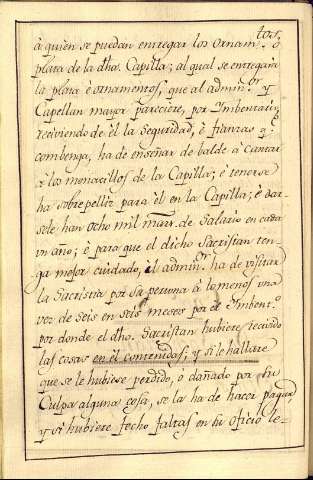 à quien se puedan entregar los Ornam.tos, ò
plata de la dho. Capilla; al qual se entregará
la plata è ornamentos, que al admin.or y
Capellan mayor pareciere, por Imbentario,
reciviendo de èl la seguridad, è fianzas q.e
combenga, ha de enseñar de balde à cantar
à los monacillos de la Capilla; è tenerse
ha sobrepelliz para èl en la Capilla; è dar-
sele han ocho mil mar.s de Salario en cada
un año; è para que el dicho Sacristan ten-
ga mejor cuidado, el admin.or ha de visitar
la Sacristia por su persona à lo menos una
vez de seis en seis meses por el Imbent.o
por donde el dho. Sacristan hubiere recivido
las cosas en èl contenidas; y si le hallare
que se le hubiese perdido, o dañado por su
Culpa alguna cosa, se la ha de hacer pagar
y si hubiere fecho faltas en su oficio le-